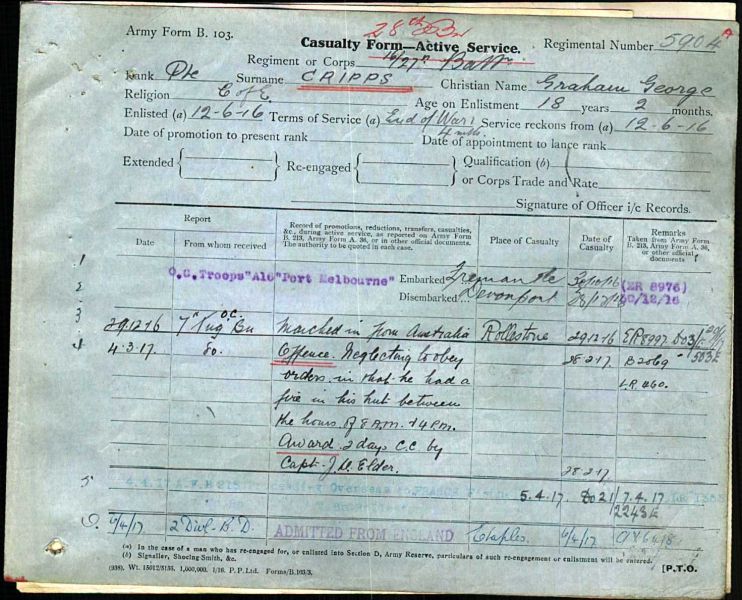 28th Bn
Army Form B. 103.
Casualty Form—Active Service.
Regimental Number 5904 A
Regiment or Corps 16/27th Batt.
Rank Pte Surname CRIPPS Christian Name Graham George
Religion C of E Age on Enlistment 18 years 2 months.
Enlisted (a) 12-6-16 Terms of Service (a) End of War & 4 mths. Service reckons from (a) 12-6-16
Date of promotion to present rank Date of appointment to lance rank
Extended Re-engaged Qualification (b)
or Corps Trade and Rate
Signature of Officer i/c Records.
Report
Date From whom received
Record of promotions, reductions, transfers, casualties, &c., during active service, as reported on Army Form B. 213, Army Form A. 36, or in other official documents. The authority to be quoted in each case.
Place of Casualty
Date of Casualty
Remarks
Taken from Army Form B. 213, Army Form A. 36, or other official documents
O.C. Troops "A16" Port Melbourne" Embarked Fremantle (ER 8976)
Disembarked Devonport 30/12/16
29.12.16 7th Trng Bn O.C. Marched in from Australia Rollestone 29.12.16 ER 8997
4.3.17. Do. Offence. Neglecting to obey 28.2.17 B2069
orders in that he had a
fire in his hut between
the hours of 8 A.M. & 4 P.M.
Award. 2 days C.C. by
Capt. J.D. Elder. 28.2.17
4.4.17 Overseas France
5.4.17 7.4.17
2243E
6/4/17 2 Divl. B.D. ADMITTED FROM ENGLAND Etaples 6/4/17
(a) In the case of a man who has re-engaged for, or enlisted into Section D, Army Reserve, particulars of such re-engagement or enlistment will be entered.
(b) Signaller, Shoeing-Smith, &c.
(938). Wt. 15012/5135. 1,000,000. 1/16. P.P.Ltd. Forms/B.103/3.
[P.T.O.